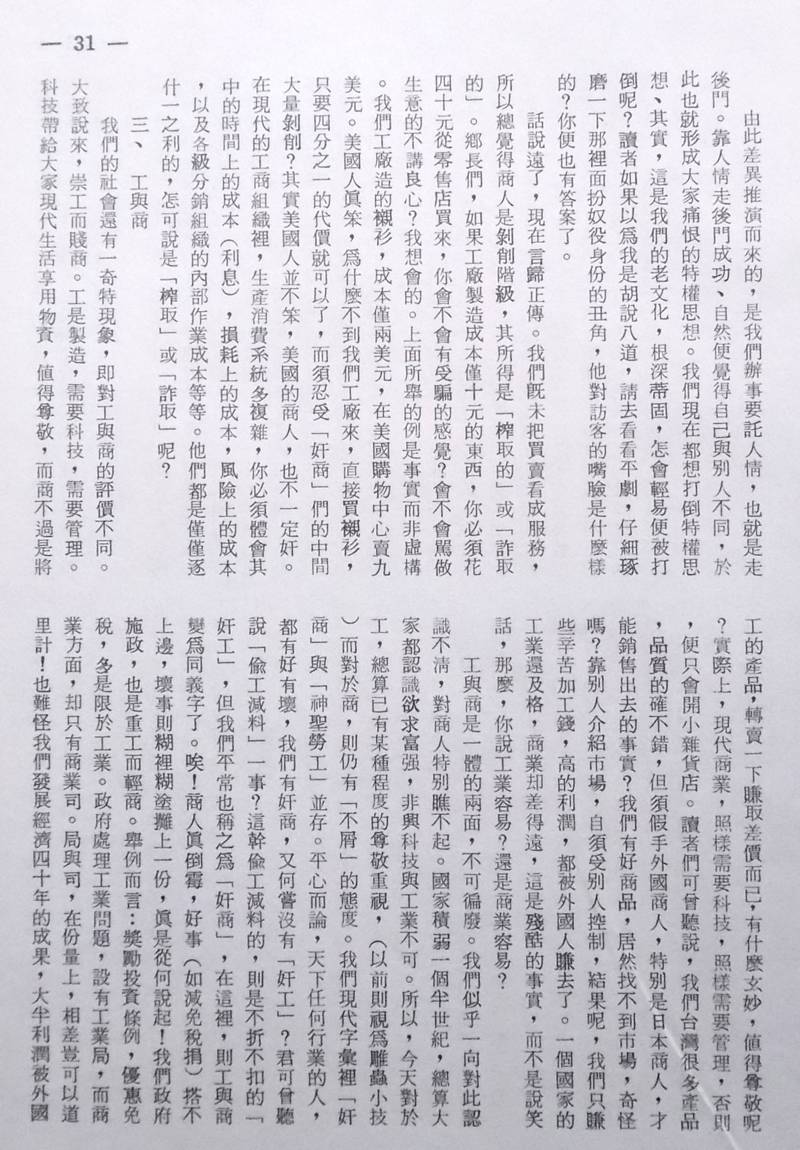 — 31 —
由此差異推演而來的，是我們辦事要託人情，也就是走
後門。靠人情走後門成功、自然便覺得自己與別人不同，於
此也就形成大家痛恨的特權思想。我們現在都想打倒特權思
想、其實，這是我們的老文化，根深蒂固，怎會輕易便被打
倒呢？讀者如果以爲我是胡說八道，請去看看平劇，仔細琢
磨一下那裡面扮奴役身份的丑角，他對訪客的嘴臉是什麼樣
的？你便也有答案了。
話說遠了，現在言歸正傳。我們旣未把買賣看成服務，
所以總覺得商人是剝削階級，其所得是「榨取的」或「詐取
的」。鄉長們，如果工廠製造成本僅十元的東西，你必須花
四十元從零售店買來，你會不會有受騙的感覺？會不會罵做
生意的不講良心？我想會的。上面所舉的例是事實而非虛構
。我們工廠造的襯衫，成本僅兩美元，在美國購物中心賣九
美元。美國人眞笨，爲什麼不到我們工廠來，直接買襯衫，
只要四分之一的代價就可以了，而須忍受「奸商」們的中間
大量剝削？其實美國人並不笨，美國的商人，也不一定奸。
在現代的工商組織裡，生產消費系統多複雜，你必須體會其
中的時間上的成本（利息），損耗上的成本，風險上的成本
，以及各級分銷組織的內部作業成本等等。他們都是僅僅逐
什一之利的，怎可說是「榨取」或「詐取」呢？
三、　工與商
我們的社會還有一奇特現象，即對工與商的評價不同。
大致說來，崇工而賤商。工是製造，需要科技，需要管理。
科技帶給大家現代生活享用物資，値得尊敬，而商不過是將
工的產品，轉賣一下賺取差價而已，有什麼玄妙，値得尊敬呢
？實際上，現代商業，照樣需要科技，照樣需要管理，否則
，便只會開小雜貨店。讀者們可曾聽說，我們台灣很多產品
，品質的確不錯，但須假手外國商人，特別是日本商人，才
能銷售出去的事實？我們有好商品，居然找不到市場，奇怪
嗎？靠別人介紹市場，自須受別人控制，結果呢，我們只賺
些辛苦加工錢，高的利潤，都被外國人賺去了。一個國家的
工業還及格，商業却差得遠，這是殘酷的事實，而不是說笑
話，那麼，你說工業容易？還是商業容易？
工與商是一體的兩面，不可徧廢。我們似乎一向對此認
識不清，對商人特別瞧不起。國家積弱一個半世紀，總算大
家都認識欲求富强，非興科技與工業不可。所以，今天對於
工，總算已有某種程度的尊敬重視，（以前則視爲雕蟲小技
）而對於商，則仍有「不屑」的態度。我們現代字彙裡「奸
商」與「神聖勞工」並存。平心而論，天下任何行業的人，
都有好有壞，我們有奸商，又何嘗沒有「奸工」？君可曾聽
說「偷工減料」一事？這幹偷工減料的，則是不折不扣的「
奸工」，但我們平常也稱之爲「奸商」，在這裡，則工與商
變爲同義字了。唉！商人眞倒霉，好事（如減免稅捐）搭不
上邊，壞事則糊裡糊塗攤上一份，眞是從何說起！我們政府
施政，也是重工而輕商。舉例而言：奬勵投資條例，優惠免
稅，多是限於工業。政府處理工業問題，設有工業局，而商
業方面，却只有商業司。局與司，在份量上，相差豈可以道
里計！也難怪我們發展經濟四十年的成果，大半利潤被外國